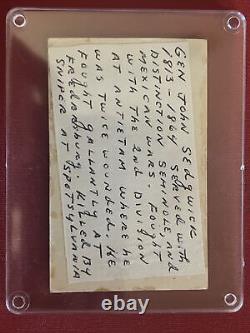 GEN JOHN SEDGWICK
1813-1864 SERVED WITH
DISTINCTION SEMINOLE, AND
MEXICAN WARS. FOUGHT
WITH THE 2ND DIVISION
AT ANTIETAM WHERE HE
WAS TWICE WOUNDED. HE
FOUGHT GALLANTLY AT
FREDRICKSBURG. KILLED BY
SNIPER AT SPOTSYLVANIA